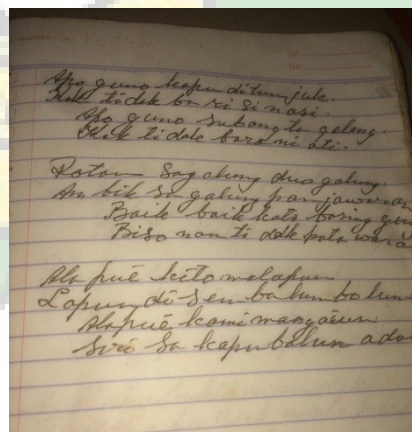 Apo guno kapu ditunjuk.
Kok tidak ba ri si nasi.
Apo guno subang ta golang.
Kok tidak bara ni ati.
Rotan sag alung duo galung.
Am bik sa galung pan jawaran
Baik baik kato baring gin
Biso nan ti dak pata wara
Ala puē kito malapun
Lapun di sem ba lum ba lun
Ala puē kami mangaiun
Siri sa kapu balun ado